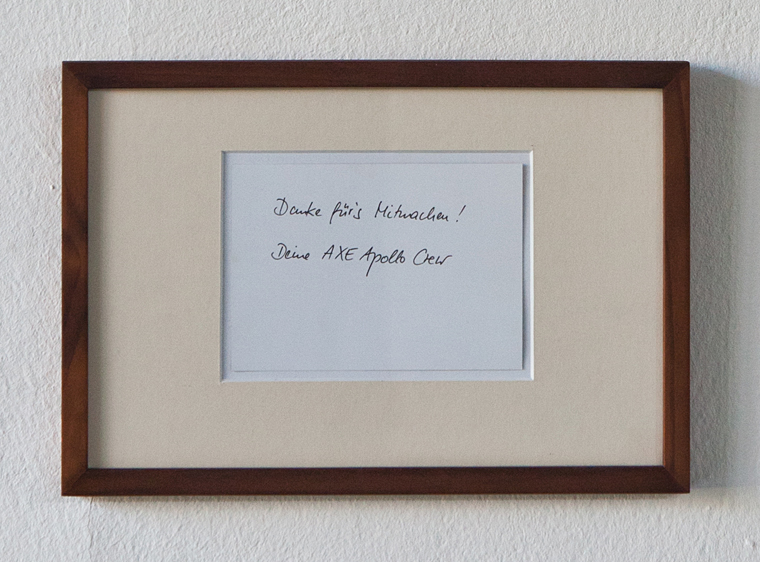 Danke für's Mitmachen!
Deine AXE Apollo Crew